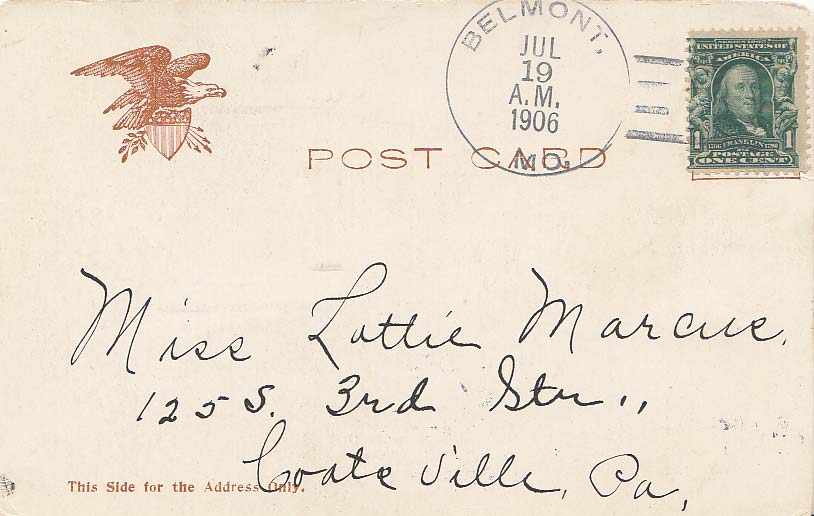 BELMONT,
JUL
19
A.M.
1906
MO.
SERIES 1902
UNITED STATES OF
AMERICA
1 1
1706 FRANKLIN 1790
POSTAGE
ONE CENT
POST CARD
Miss Lottie Marcus,
125 S. 3rd Str.,
Coatsville, Pa,
This Side for the Address Only.